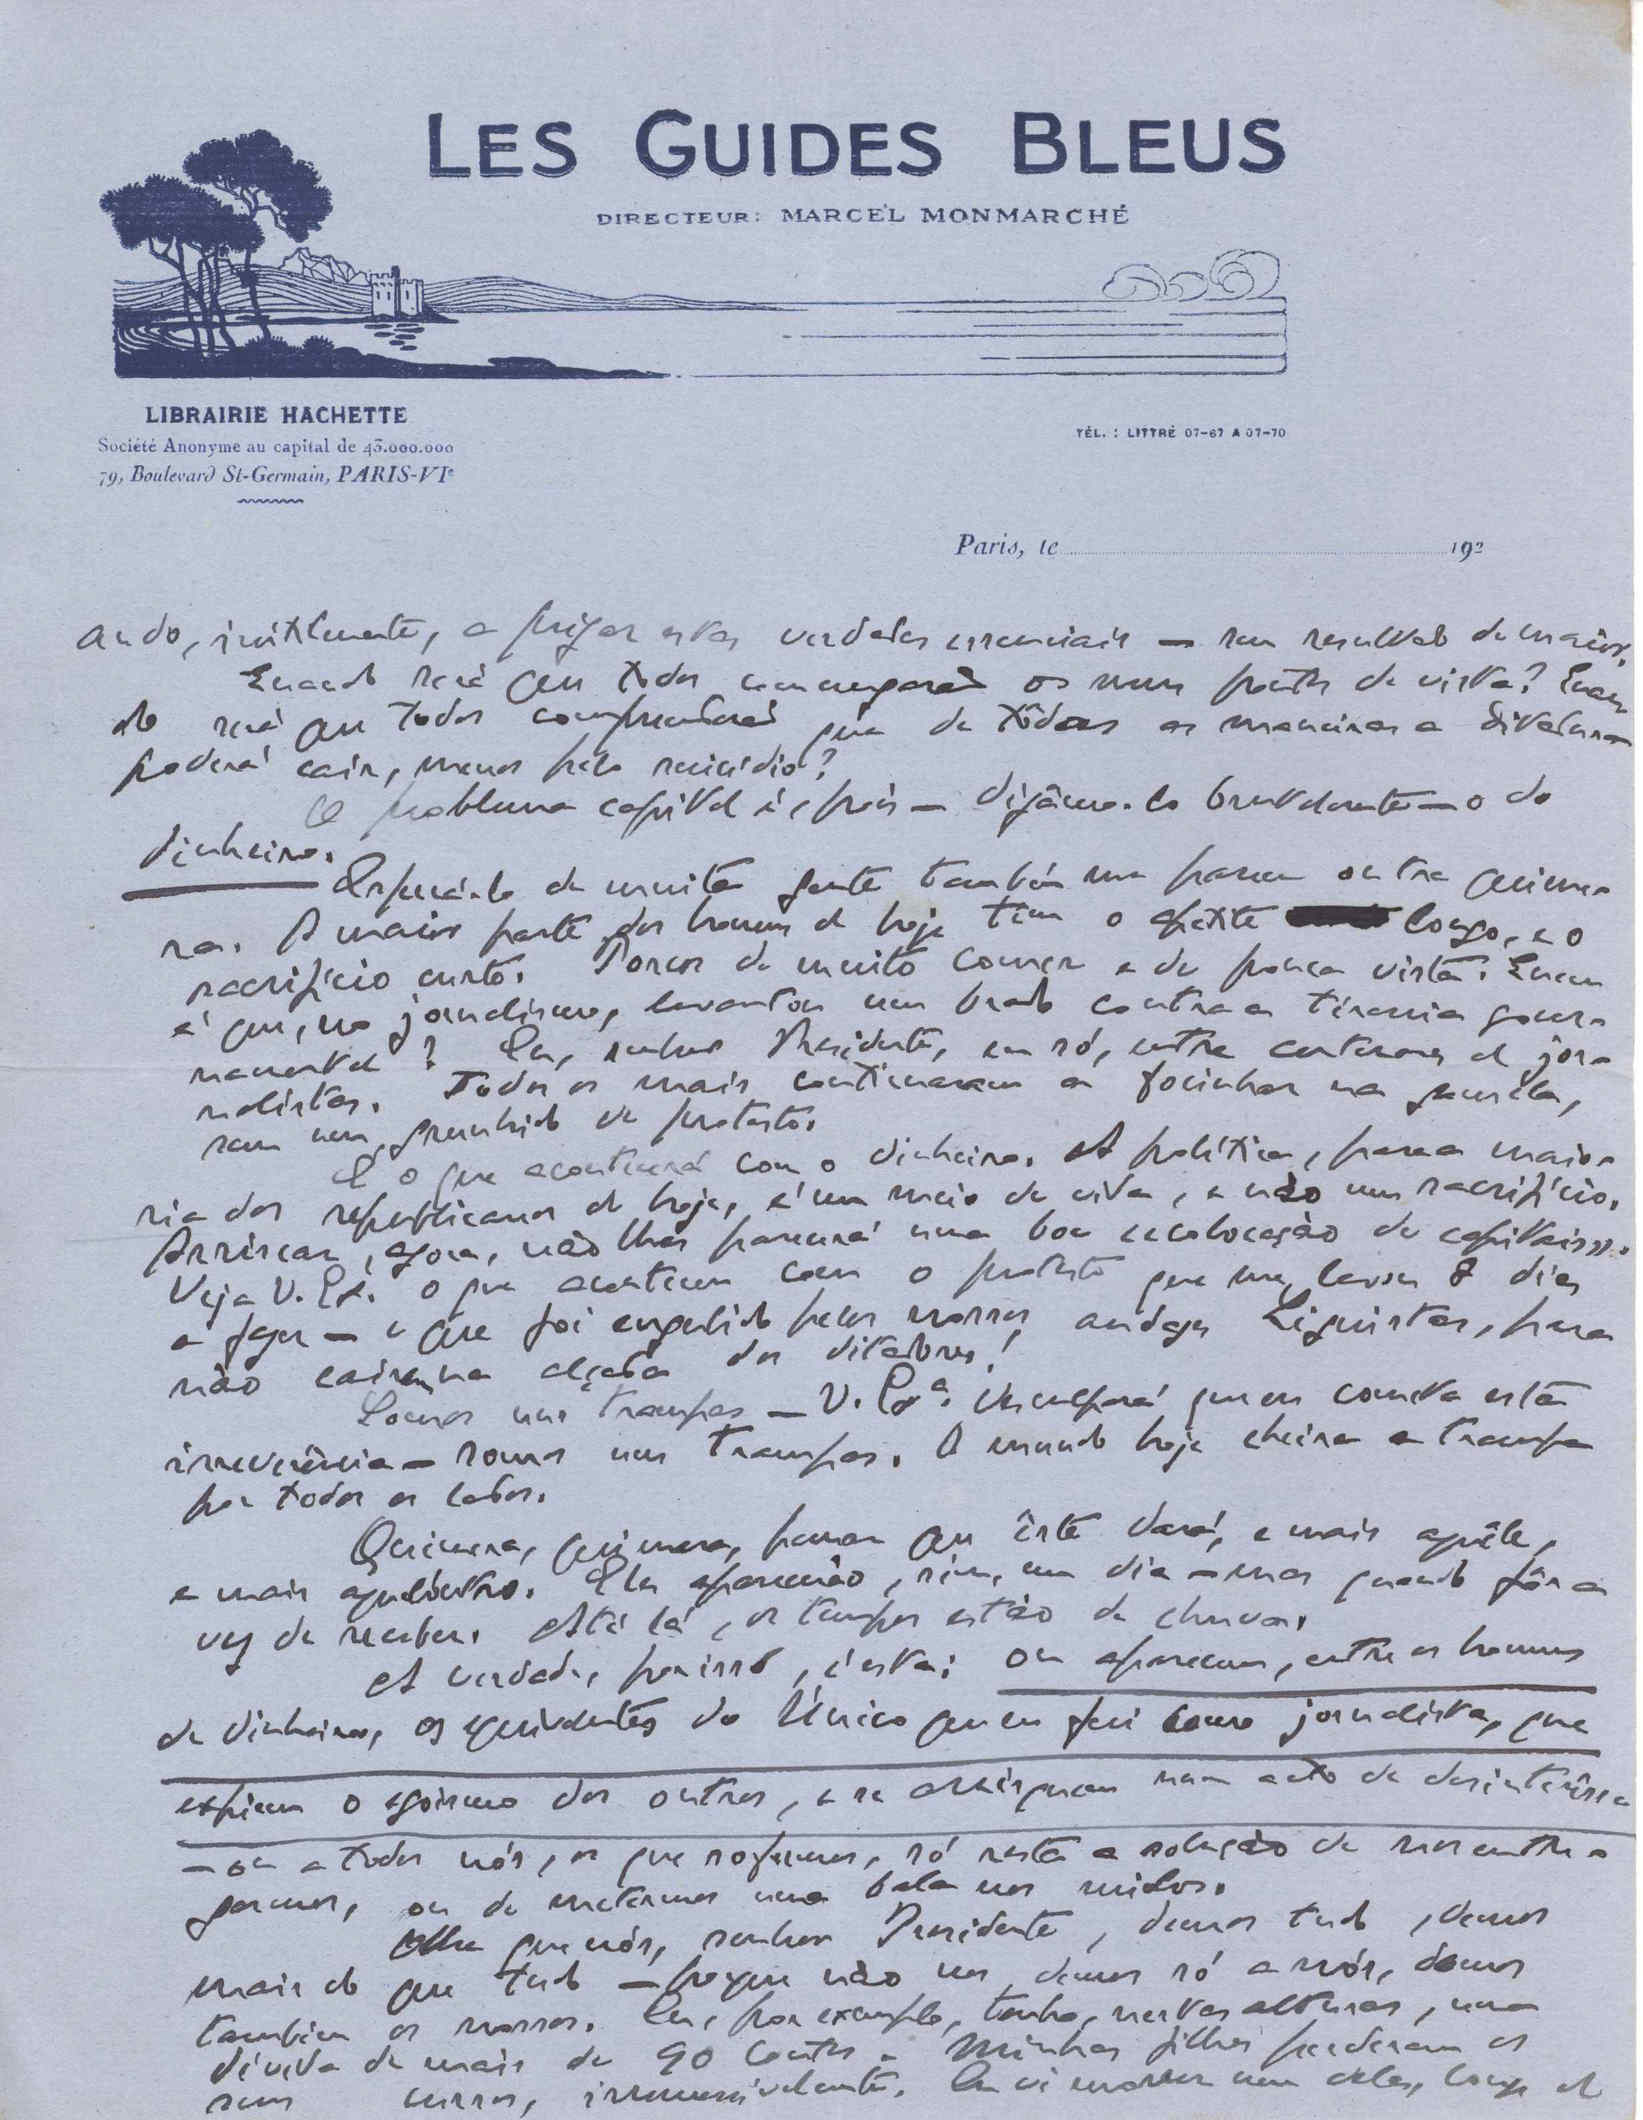 LES GUIDES BLEUS
DIRECTEUR: MARCEL MONMARCHÉ
LIBRAIRIE HACHETTE
Société Anonyme au capital de 43.000.000
79, Boulevard St-Germain, PARIS-VIe
TÉL. : LITTRÉ 07-67 A 07-70
Paris, le 192
ando, inutilmente, a pregar estas verdades essenciais — sem resultado de maior.
Quando será que todos comungarão os meus pontos de vista? Quan
do será que todos compreenderão que de tôdas as maneiras a ditadura
poderá cair, menos pelo suicídio?
O problema capital é, pois — digâmo-lo brutalmente — o do
dinheiro.
Esperá-lo de muita gente também me parece outra quime-
ra. A maior parte dos homens de hoje têm o apetite longo, e o
sacrifício curto. Porcos de muito comer e de pouca vista. Quem
é que, no jornalismo, levantou um brado contra a tirania gover-
namental? Eu, senhor Presidente, eu só, entre centenas de jor-
nalistas. Todos os mais continuaram a focinhar na gamela,
sem um grunhido de protesto.
É o que acontecerá com o dinheiro. A política, para a maio-
ria dos republicanos de hoje, é um meio de vida, e não um sacrifício.
Arriscar, agora, não lhes parecerá uma boa colocação de capitais...
Veja V. Ex. o que aconteceu com o protesto que me levou 8 dias
a fazer — e que foi engulido pelos nossos audazes Liguistas, para
não cairem na alçada dos ditadores!
Somos uns trampas — V. Exª. desculpará quem cometa esta
irreverência — somos uns trampas. O mundo hoje cheira a trampa
por todos os lados.
Quimera, quimera, pensar que êste dará, e mais aquêle,
e mais aqueloutro. Eles aparecerão, sim, um dia — mas quando fôr a
vez de receber. Até lá, os tempos estão de chuva.
A verdade, por isso, é esta: ou aparecem, entre os homens
de dinheiro, os equivalentes do Único que eu fui como jornalista, que
expiem o egoismo dos outros, e se arrisquem num acto de desinterêsse
— ou a todos nós, os que sofremos, só resta a solução de nos entre-
garmos, ou de metermos uma bala nos miolos.
Olhe que nós, senhor Presidente, demos tudo, demos
mais do que tudo — porque não nos demos só a nós, demos
tambem os nossos. Eu, por exemplo, tenho, nestas alturas, uma
dívida de mais de 90 contos. Minhas filhas perderam os
seus cursos, irremissivelmente. Eu vi morrer um deles, longe de